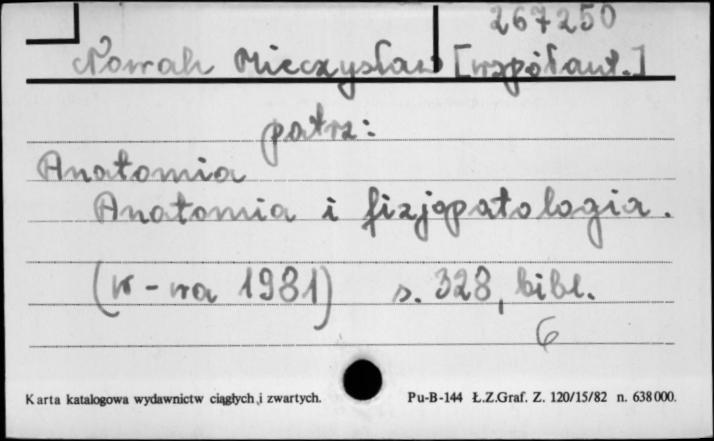 267250
Nowak Mieczysław [współaut.]
patrz:
Anatomia
Anatomia i fizjopatologia.
(W-wa 1981) s. 328, bibl.
6
Karta katalogowa wydawnictw ciągłych i zwartych. Pu-B-144 Ł.Z.Graf. Z. 120/15/82 n. 638000.